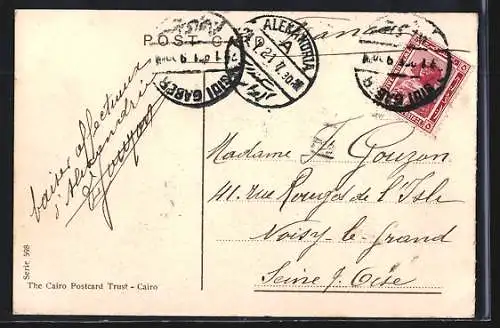 POST CARD
ALEXANDRIA
A
SIDI GABER
SIDI GABER
baisers affectueux
d'Alexandrie
Madame J. Gouzon
41. rue Rouget de l'Isle
Noisy-le-Grand
Seine & Oise
Serie 598
The Cairo Postcard Trust - Cairo